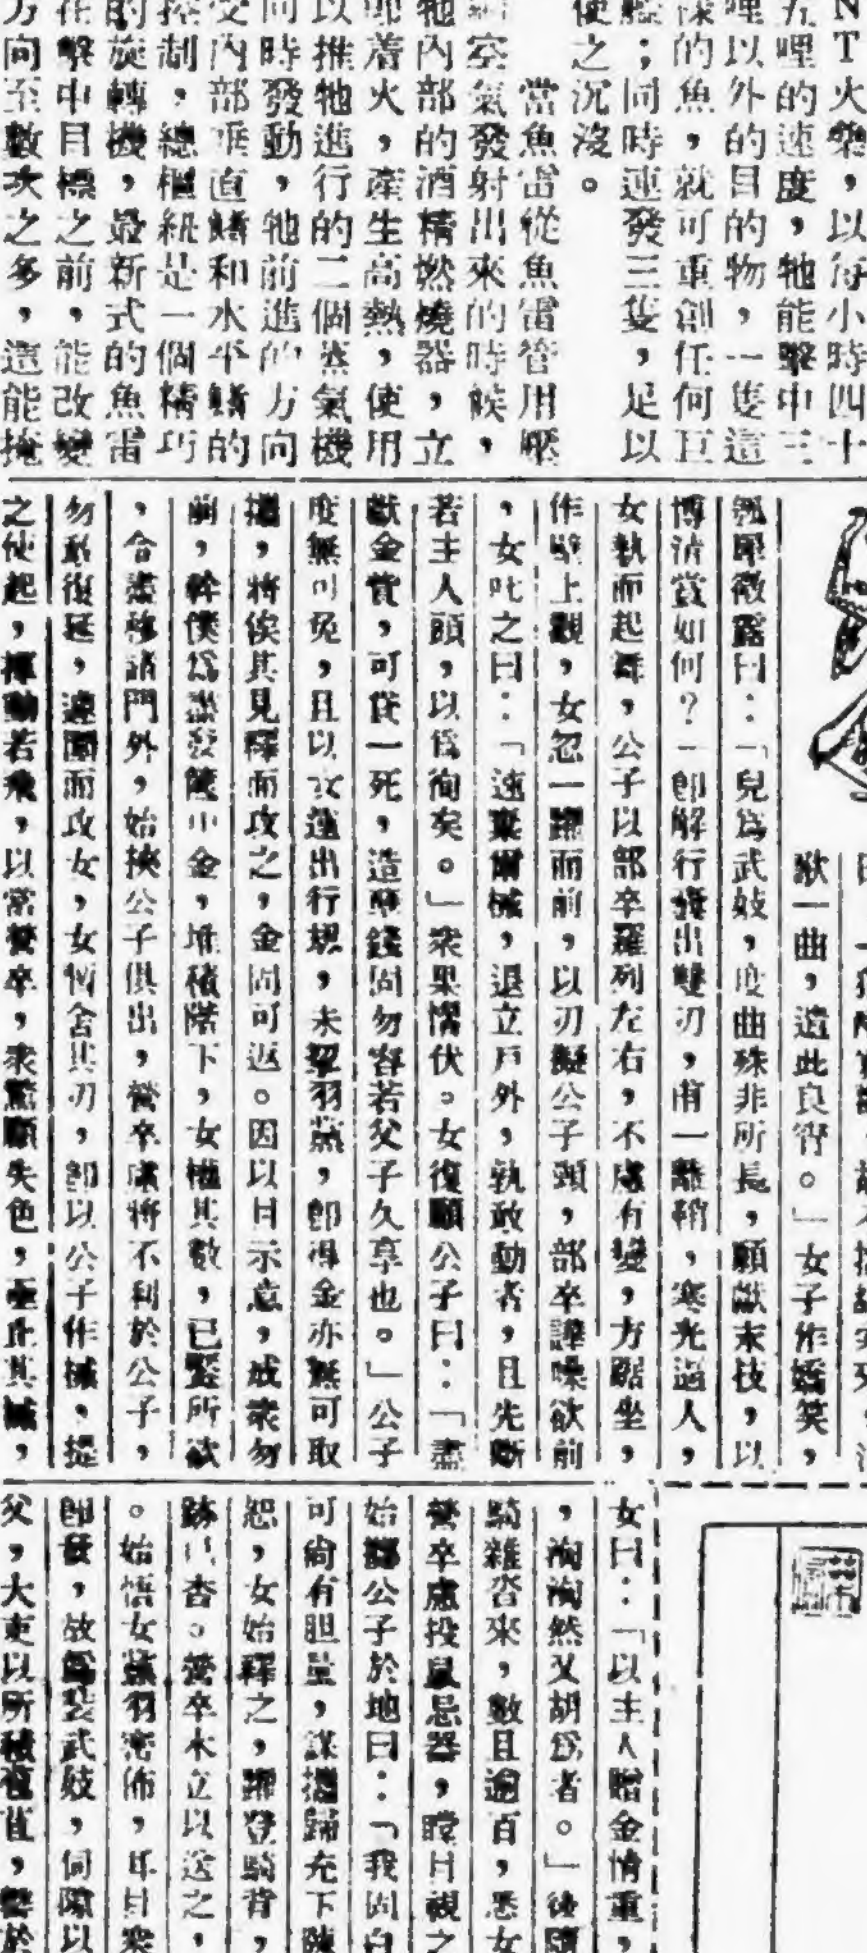 NT火藥，以每小時四十
五哩的速度，牠能擊中三
哩以外的目的物，一隻這
樣的魚，就可重創任何巨
艦；同時連發三隻，足以
使之沉沒。
當魚雷從魚雷管用壓
縮空氣發射出來的時候，
牠內部的酒精燃燒器，立
即着火，產生高熱，使用
以推牠進行的二個蒸氣機
同時發動，牠前進的方向
受內部垂直鰭和水平鰭的
控制，總樞紐是一個精巧
的旋轉機，最新式的魚雷
在擊中目標之前，能改變
方向至數次之多，這能掩
歌一曲，遣此良宵。」女子作嬌笑，
瓠犀微露曰：「兒爲武妓，度曲殊非所長，願獻末技，以
博清賞如何？」卽解行囊出雙刃，甫一離鞘，寒光逼人，
女執而起舞，公子以部卒羅列左右，不慮有變，方踞坐，
作壁上觀，女忽一躍而前，以刃擬公子頸，部卒譁噪欲前
，女叱之曰：「速棄爾械，退立戶外，孰敢動者，且先斷
若主人頭，以爲徇矣。」衆果慴伏。女復顧公子曰：「盡
獻金貲，可貸一死，造孽錢固勿容若父子久享也。」公子
度無可免，且以女逸出行轅，未翼羽黨，卽得金亦無可取
攜，將俟其見釋而攻之，金固可返。因以目示意，戒衆勿
前，幹僕爲盡發篋中金，堆積階下，女檢其數，已豎所欲
，令盡移諸門外，始挾公子俱出，營卒慮將不利於公子，
勿敢復延，連圍而攻女，女暫舍其刃，卽以公子作械，提
之使起，揮動若飛，以當營卒，衆驚顧失色，亟止其械，
女曰：「以主人贈金情重，
，洶洶然又胡爲者。」後隨
騎雜沓來，數且逾百，悉女
營卒慮投鼠忌器，瞠目視之
始擲公子於地曰：「我固自
可尙有胆量，謀攜歸充下陳
恕，女始釋之，躍登騎背，
跡已杳。營卒木立以送之，
。始悟女黨羽密佈，耳目衆
卽發，故僞裝武妓，伺隙以
父，大吏以所積